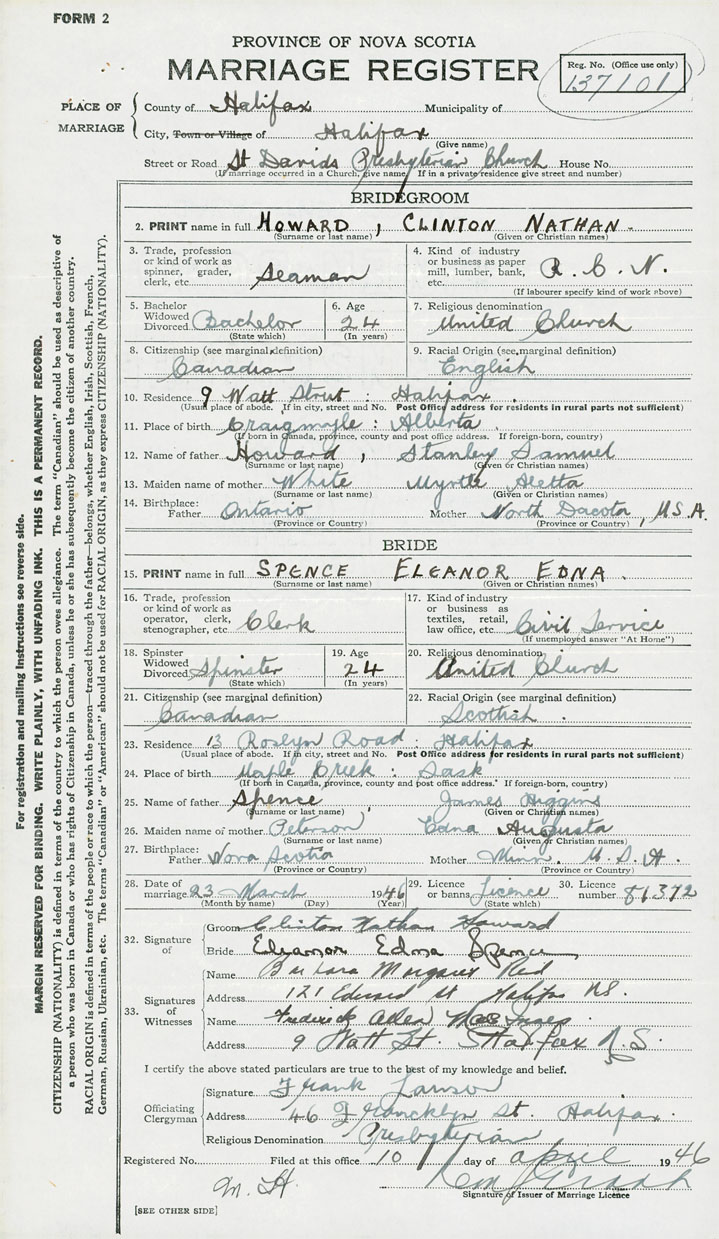 FORM 2
PROVINCE OF NOVA SCOTIA
MARRIAGE REGISTER
Reg. No. (Office use only)
137101
PLACE OF MARRIAGE
County of Halifax Municipality of
City, Town or Village of Halifax
(Give name)
Street or Road St Davids Presbyterian Church House No.
(If marriage occurred in a Church, give name If in a private residence give street and number)
BRIDEGROOM
2. PRINT name in full HOWARD, CLINTON NATHAN.
(Surname or last name) (Given or Christian names)
3. Trade, profession or kind of work as spinner, grader, clerk, etc. Seaman
4. Kind of industry or business as paper mill, lumber, bank, etc. R.C.N.
(If labourer specify kind of work above)
5. Bachelor Widowed Divorced Bachelor
(State which)
6. Age 24
(In years)
7. Religious denomination
United Church
8. Citizenship (see marginal definition)
Canadian
9. Racial Origin (see marginal definition)
English
10. Residence 9 Watt Street : Halifax.
(Usual place of abode. If in city, street and No. Post Office address for residents in rural parts not sufficient)
11. Place of birth Craigmyle : Alberta.
(If born in Canada, province, county and post office address. If foreign-born, country)
12. Name of father Howard, Stanley Samuel
(Surname or last name) (Given or Christian names)
13. Maiden name of mother White Myrtle Aletta
(Surname or last name) (Given or Christian names)
14. Birthplace: Father Ontario Mother North Dacota, U.S.A.
(Province or Country) (Province or Country)
BRIDE
15. PRINT name in full SPENCE ELEANOR EDNA.
(Surname or last name) (Given or Christian names)
16. Trade, profession or kind of work as operator, clerk, stenographer, etc Clerk
17. Kind of industry or business as textiles, retail, law office, etc. Civil Service
(If unemployed answer "At Home")
18. Spinster Widowed Divorced Spinster
(State which)
19. Age 24
(In years)
20. Religious denomination
United Church
21. Citizenship (see marginal definition)
Canadian
22. Racial Origin (see marginal definition)
Scottish.
23. Residence 13 Roslyn Road : Halifax
(Usual place of abode. If in city, street and No. Post Office address for residents in rural parts not sufficient)
24. Place of birth Maple Creek : Sask
(If born in Canada, province, county and post office address. If foreign-born, country)
25. Name of father Spence, James Higgins
(Surname or last name) (Given or Christian names)
26. Maiden name of mother Peterson Edna Augusta
(Surname or last name) (Given or Christian names)
27. Birthplace: Father Nova Scotia Mother Minn. U.S.A.
(Province or Country) (Province or Country)
28. Date of marriage 23 March 1946
(Month by name) (Day) (Year)
29. Licence or banns Licence
(State which)
30. Licence number 81372
32. Signature of
Groom Clinton Nathan Howard
Bride Eleanor Edna Spence
33. Signatures of Witnesses
Name Barbara Margaret Reid
Address 121 Edward St Halifax N.S.
Name Frederick Allen
Address 9 Watt St. Halifax N.S.
I certify the above stated particulars are true to the best of my knowledge and belief.
Officiating Clergyman
Signature Frank Lawson
Address 46 Francklyn St. Halifax.
Religious Denomination Presbyterian
Registered No. Filed at this office 10 day of April 1946
M. H.
Signature of Issuer of Marriage Licence
[SEE OTHER SIDE]
For registration and mailing instructions see reverse side.
MARGIN RESERVED FOR BINDING. WRITE PLAINLY, WITH UNFADING INK. THIS IS A PERMANENT RECORD.
CITIZENSHIP (NATIONALITY) is defined in terms of the country to which the person owes allegiance. The term "Canadian" should be used as descriptive of
a person who was born in Canada or who has rights of Citizenship in Canada, unless he or she has subsequently become the citizen of another country.
RACIAL ORIGIN is defined in terms of the people or race to which the person—traced through the father—belongs, whether English, Irish, Scottish, French,
German, Russian, Ukrainian, etc. The terms "Canadian" or "American" should not be used for RACIAL ORIGIN, as they express CITIZENSHIP (NATIONALITY).